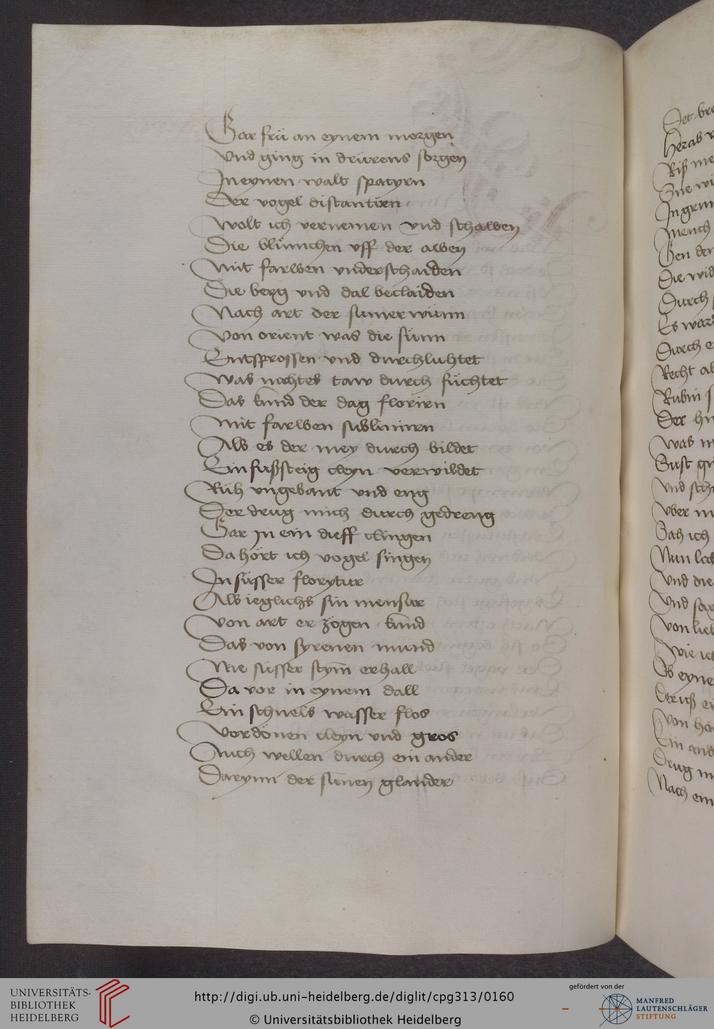 Gar frü an eynem morgen
Vnd ging in drürens sorgen
In eynen walt spatyrn
Der vogel discantiren
Wolt ich vernemen vnd schawen
Die blümchen vff der awen
Mit farwen vnderschaiden
Die berg vnd dal beclaiden
Nach art der sumer wünn
Von orient was die sünn
Entsprossen vnd durchluhtet
Was nachtes taw durch füchtet
Das kund der dag florirn
Mit farwen sublimirn
Als es der mey durch bildet
Ein fußsteig cleyn verwildet
Rüh vngebant vnd eng
Der drug mich durch gedreng
Gar jn ein dieff clingen
Da hört ich vogel singen
In süsser florytur
Als ieglichs sin mensur
Von art erzogen kund
Das von syrenen mund
Nie süsser stym erhall
Da vor in eynem dall
Ein schnels wasser flos
Von dönen cleyn vnd gros
Auch wellen durch ein ander
Darynn der sunen glander
Herab
Riß
Durch
Recht
Rubin
Der
was
Sust
vnd
vber
Sah ich
Nun
Vnd die
Vnd
von
wie ich
Von
Ein and
Drug
Nach ein
UNIVERSITÄTS-
BIBLIOTHEK
HEIDELBERG
http://digi.ub.uni-heidelberg.de/diglit/cpg313/0160
© Universitätsbibliothek Heidelberg
gefördert von der
MANFRED
LAUTENSCHLÄGER
STIFTUNG